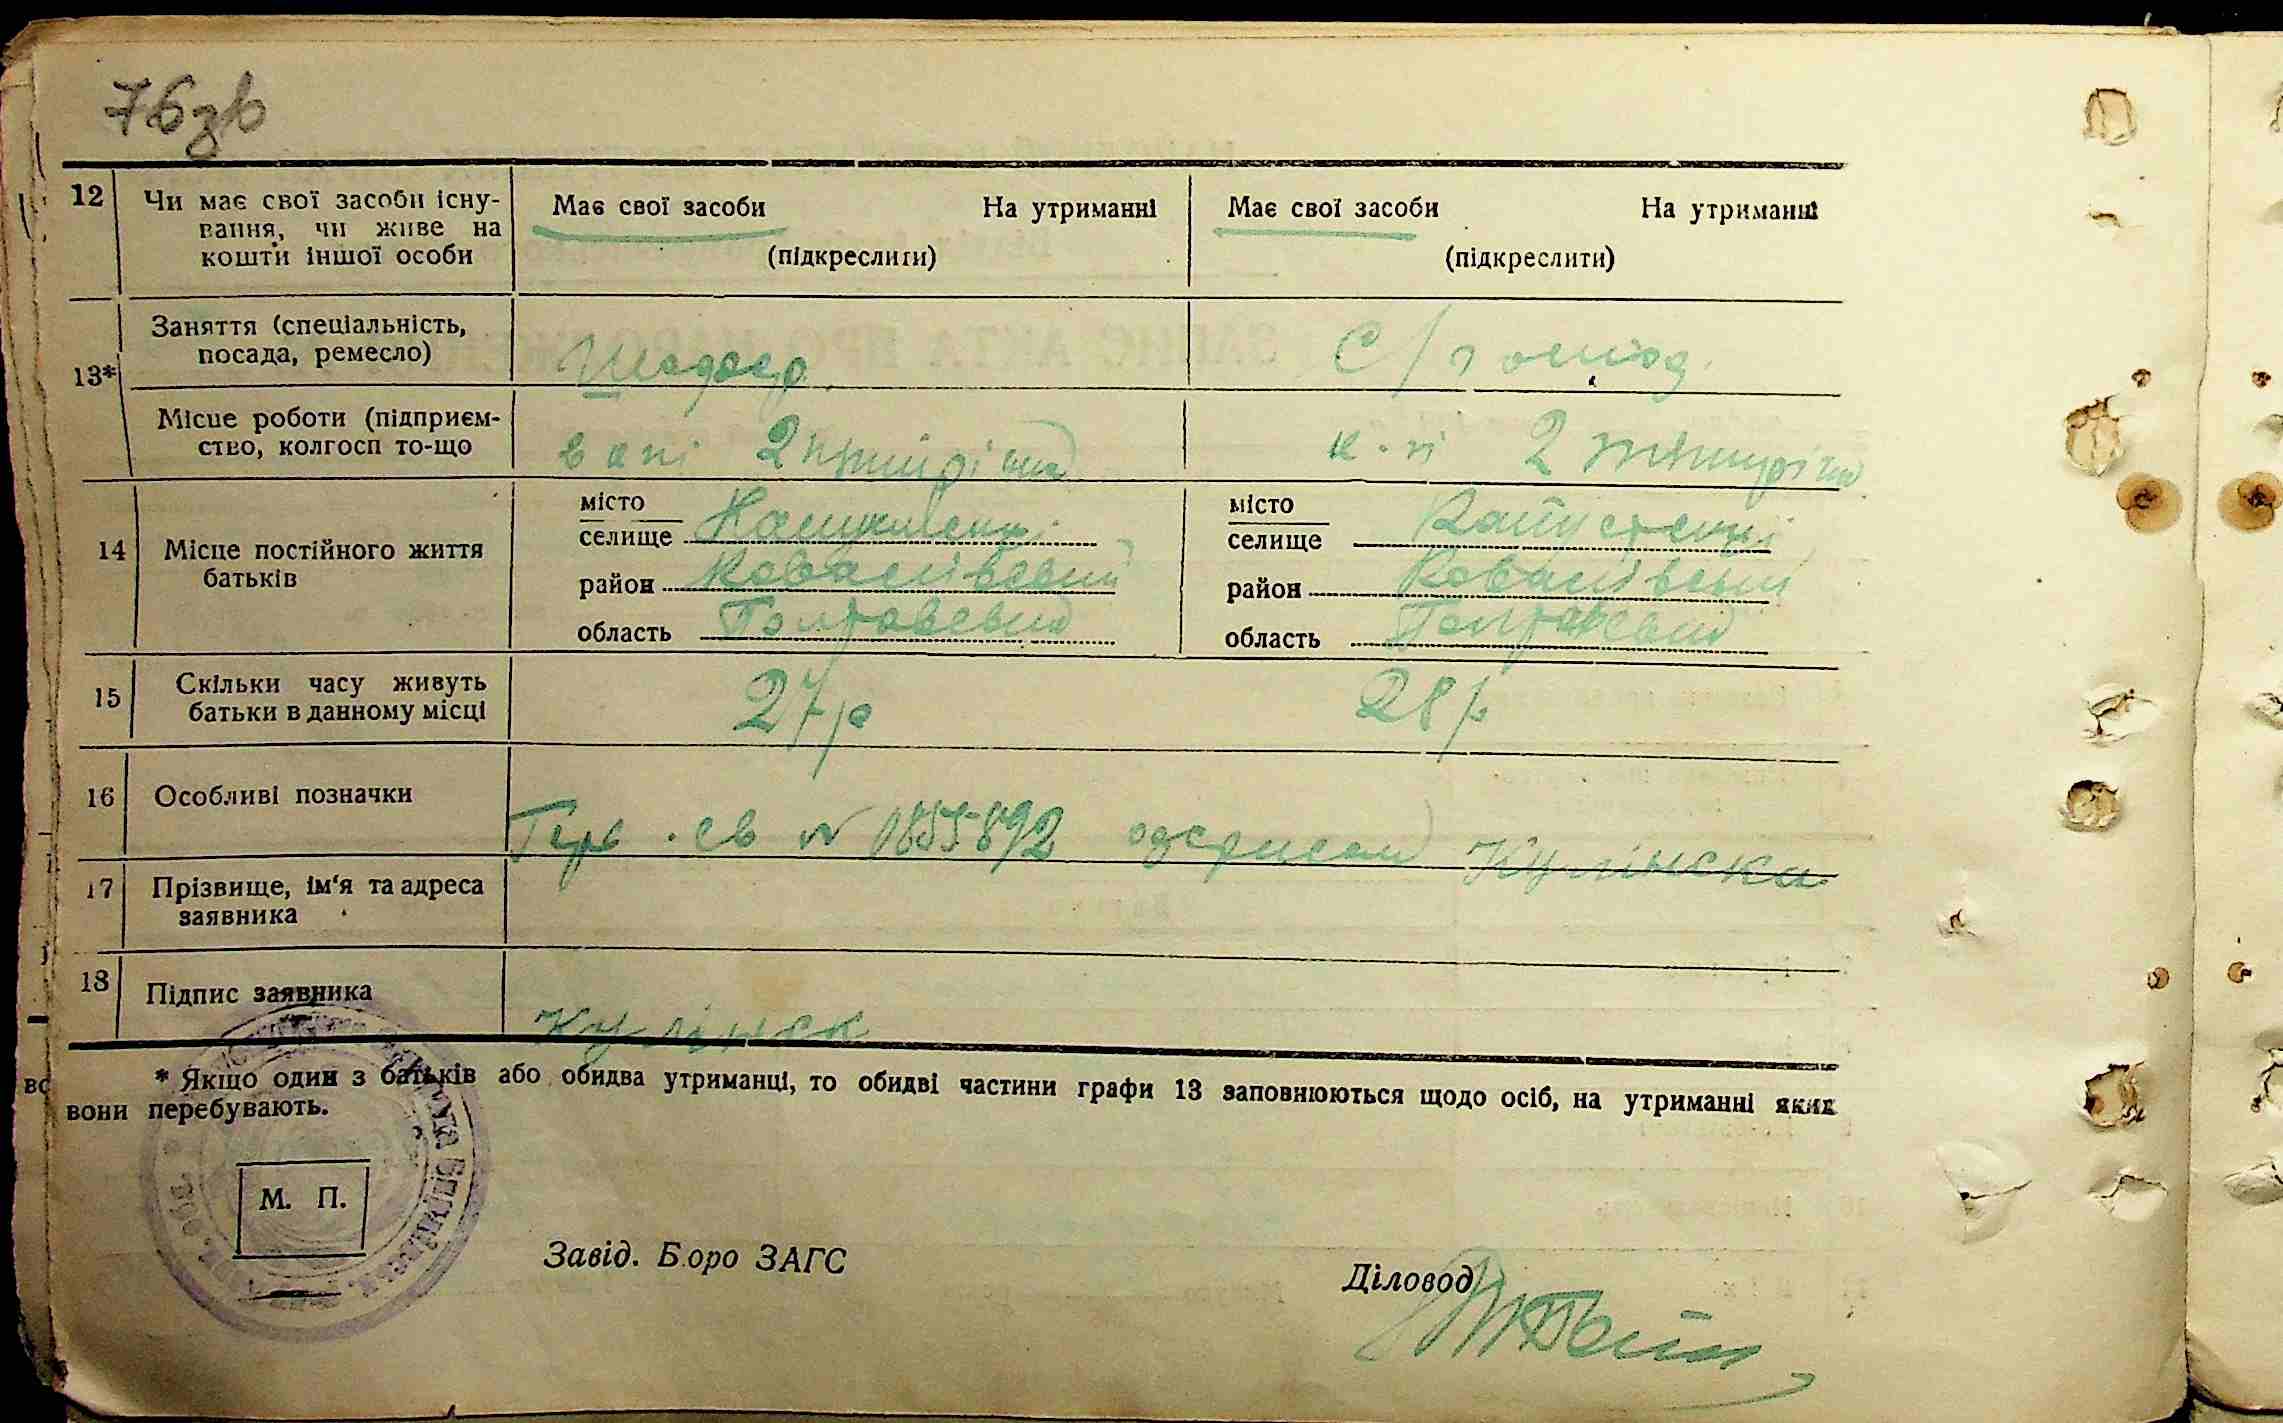 76зв
12 Чи має свої засоби існу-
вання, чи живе на
кошти іншої особи
Має свої засоби На утриманні
(підкреслити)
Має свої засоби На утриманні
(підкреслити)
13*
Заняття (спеціальність,
посада, ремесло)
С/г
Місце роботи (підприєм-
ство, колгосп то-що
2
2
14 Місце постійного життя
батьків
місто
селище
район Ковалівський
область Полтавський
місто
селище Капустенці
район Ковалівський
область Полтавский
15 Скільки часу живуть
батьки в данному місці
27р
28р
16 Особливі позначки
св № 1855892 одержала Кулінска
17 Прізвище, ім'я та адреса
заявника
18 Підпис заявника
Кулінск
* Якщо один з батьків або обидва утриманці, то обидві частини графи 13 заповнюються щодо осіб, на утриманні яких
вони перебувають.
М. П.
Завід. Бюро ЗАГС
Діловод